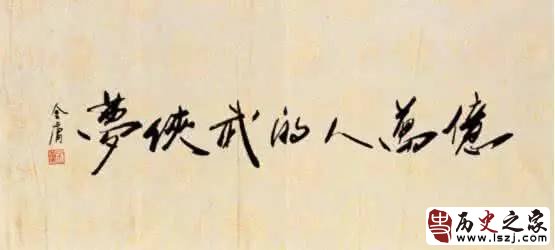 億萬人的武俠夢
金庸
历史之家
(www.lszj.com)